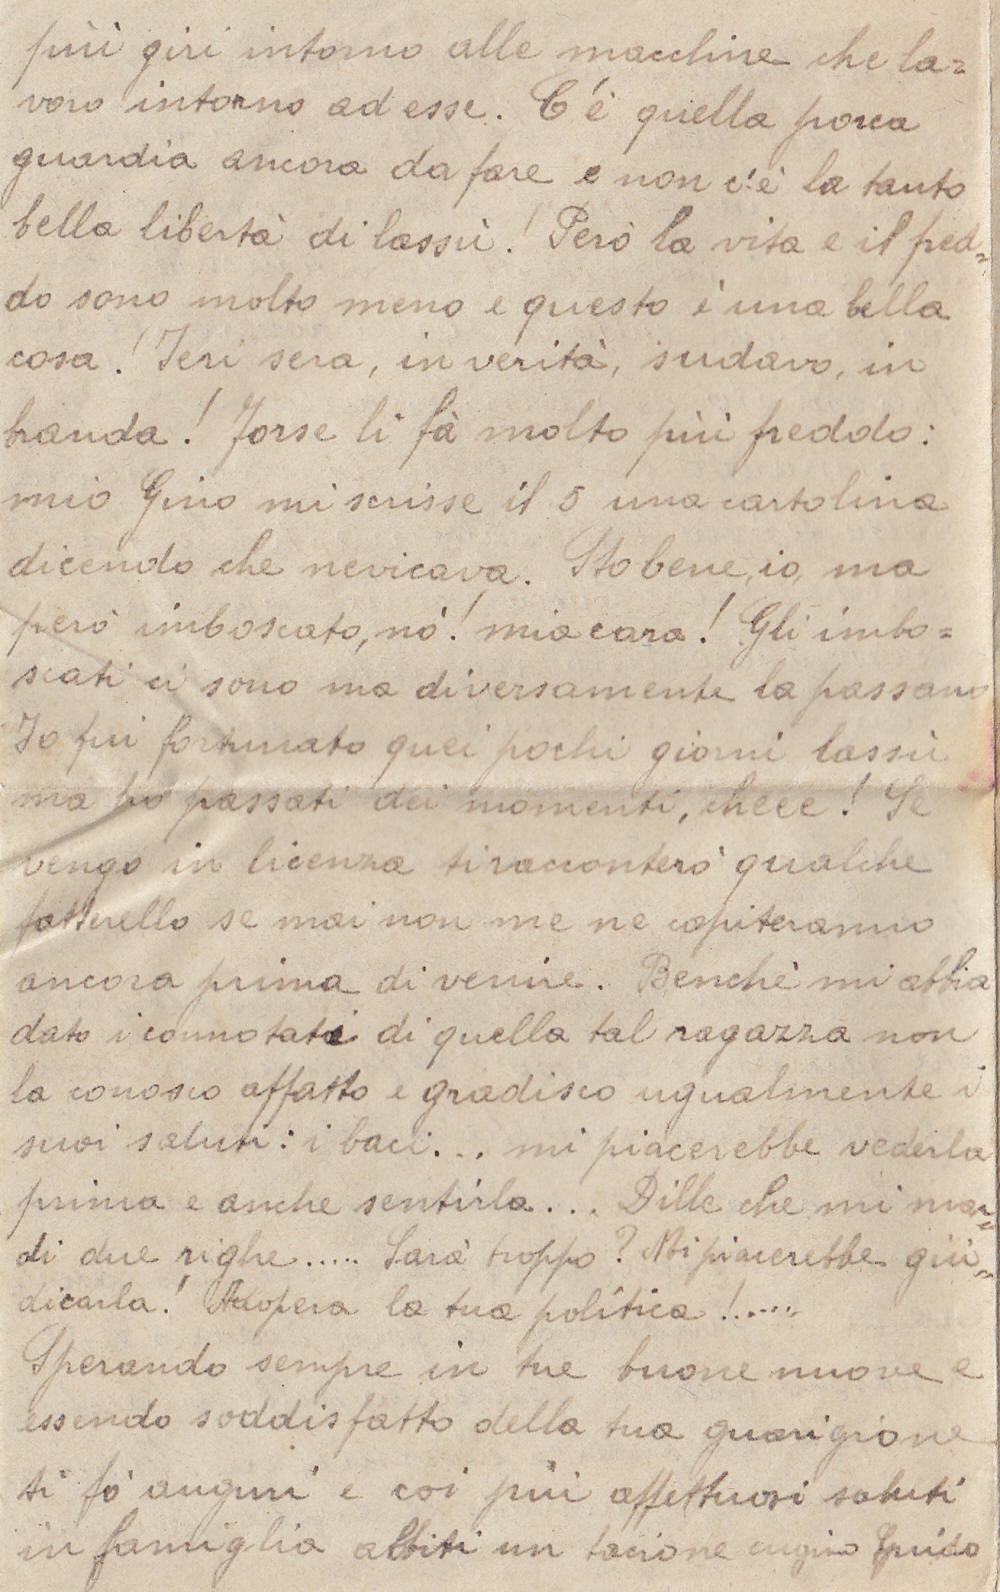 più giri intorno alle macchine che la=
voro intorno ad esse. C'è quella porca
guardia ancora da fare e non c'è la tanto
bella libertà di lassù! Però la vita e il fred=
do sono molto meno e questo è una bella
cosa! Ieri sera, in verità, sudavo, in
branda! Forse lì fà molto più freddo:
mio Gino mi scrisse il 5 una cartolina
dicendo che nevicava. Sto bene, io, ma
però imboscato, nó! mia cara! Gli imbo=
scati ci sono ma diversamente la passano
Io fui fortunato quei pochi giorni lassù
ma ho passati dei momenti, cheee! Se
vengo in licenza ti racconterò qualche
fatterello se mai non me ne capiteranno
ancora prima di venire. Benchè mi abbia
dato i connotati di quella tal ragazza non
la conosco affatto e gradisco ugualmente i
suoi saluti: i baci... mi piacerebbe vederla
prima e anche sentirla.... Dille che mi man=
di due righe..... Sarà troppo? Mi piacerebbe giu=
dicarla! Adopera la tua politica!.....
Sperando sempre in tue buone nuove e
essendo soddisfatto della tua guarigione
ti fò auguri e coi più affettuosi saluti
in famiglia abbiti un bacione cugino Guido